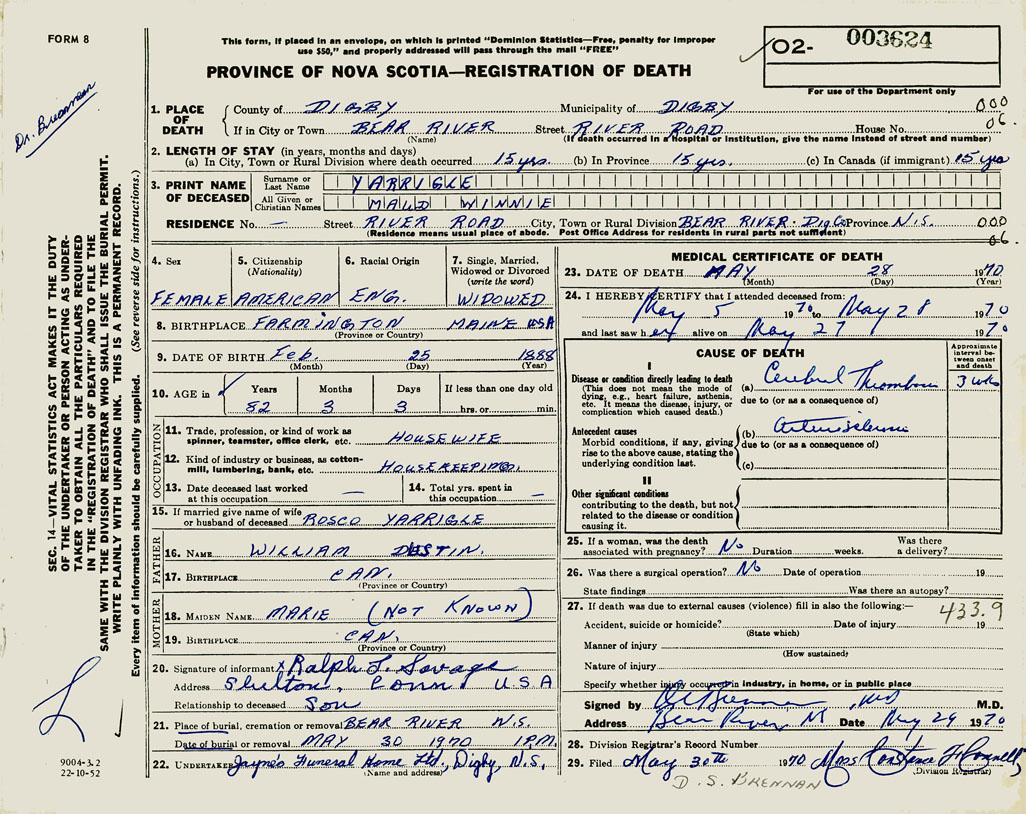 FORM 8
This form, if placed in an envelope, on which is printed "Dominion Statistics—Free, penalty for improper
use $50," and properly addressed will pass through the mail "FREE"
PROVINCE OF NOVA SCOTIA—REGISTRATION OF DEATH
O2- 003624
For use of the Department only
Dr. Brennan
SEC. 14—VITAL STATISTICS ACT MAKES IT THE DUTY
OF THE UNDERTAKER OR PERSON ACTING AS UNDER-
TAKER TO OBTAIN ALL THE PARTICULARS REQUIRED
IN THE "REGISTRATION OF DEATH" AND TO FILE THE
SAME WITH THE DIVISION REGISTRAR WHO SHALL ISSUE THE BURIAL PERMIT.
WRITE PLAINLY WITH UNFADING INK. THIS IS A PERMANENT RECORD.
Every item of information should be carefully supplied. (See reverse side for instructions.)
9004-3.2
22-10-52
1. PLACE OF DEATH
County of DIGBY Municipality of DIGBY 000
If in City or Town BEAR RIVER Street RIVER ROAD House No. 06.
(Name) (If death occurred in a hospital or institution, give the name instead of street and number)
2. LENGTH OF STAY (in years, months and days)
(a) In City, Town or Rural Division where death occurred 15 yrs. (b) In Province 15 yrs. (c) In Canada (if immigrant) 15 yrs
3. PRINT NAME OF DECEASED
Surname or Last Name YARRIGLE
All Given or Christian Names MAUD WINNIE
RESIDENCE No. — Street RIVER ROAD City, Town or Rural Division BEAR RIVER. DIG Co Province N.S. 000
(Residence means usual place of abode. Post Office Address for residents in rural parts not sufficient) 06.
4. Sex
FEMALE
5. Citizenship
(Nationality)
AMERICAN
6. Racial Origin
ENG.
7. Single, Married,
Widowed or Divorced
(write the word)
WIDOWED
8. BIRTHPLACE FARMINGTON MAINE USA
(Province or Country)
9. DATE OF BIRTH Feb. 25 1888
(Month) (Day) (Year)
10. AGE in Years Months Days If less than one day old
82 3 3 hrs. or min.
OCCUPATION
11. Trade, profession, or kind of work as
spinner, teamster, office clerk, etc. HOUSEWIFE
12. Kind of industry or business, as cotton-
mill, lumbering, bank, etc. HOUSEKEEPING.
13. Date deceased last worked
at this occupation —
14. Total yrs. spent in
this occupation —
15. If married give name of wife
or husband of deceased ROSCO YARRIGLE
FATHER
16. NAME WILLIAM DUSTIN.
17. BIRTHPLACE CAN.
(Province or Country)
MOTHER
18. MAIDEN NAME MARIE (NOT KNOWN)
19. BIRTHPLACE CAN.
(Province or Country)
20. Signature of informant x Ralph L. Savage
Address Shelton, Conn U.S.A
Relationship to deceased Son
21. Place of burial, cremation or removal BEAR RIVER N.S.
Date of burial or removal MAY 30 1970 1 P.M.
22. UNDERTAKER Jayne's Funeral Home Ltd., Digby, N.S.
(Name and address)
MEDICAL CERTIFICATE OF DEATH
23. DATE OF DEATH MAY 28 1970
(Month) (Day) (Year)
24. I HEREBY CERTIFY that I attended deceased from:
May 5 1970 to May 28 1970
and last saw her alive on May 27 1970
CAUSE OF DEATH
Approximate
interval be-
tween onset
and death
I
Disease or condition directly leading to death
(This does not mean the mode of
dying, e.g., heart failure, asthenia,
etc. It means the disease, injury, or
complication which caused death.)
(a) Cerebral Thrombosis 3 wks
due to (or as a consequence of)
Antecedent causes
Morbid conditions, if any, giving
rise to the above cause, stating the
underlying condition last.
(b) Arteriosclerosis
due to (or as a consequence of)
(c)
II
Other significant conditions
contributing to the death, but not
related to the disease or condition
causing it.
25. If a woman, was the death
associated with pregnancy? No Duration weeks. Was there
a delivery?
26. Was there a surgical operation? No Date of operation 19
State findings Was there an autopsy?
27. If death was due to external causes (violence) fill in also the following:— 433.9
Accident, suicide or homicide? Date of injury 19
(State which)
Manner of injury
(How sustained)
Nature of injury
Specify whether injury occurred in industry, in home, or in public place
Signed by Brennan MD M.D.
Address Bear River Date May 29 1970
28. Division Registrar's Record Number
29. Filed May 30th 1970 Constance
(Division Registrar)
D.S. BRENNAN